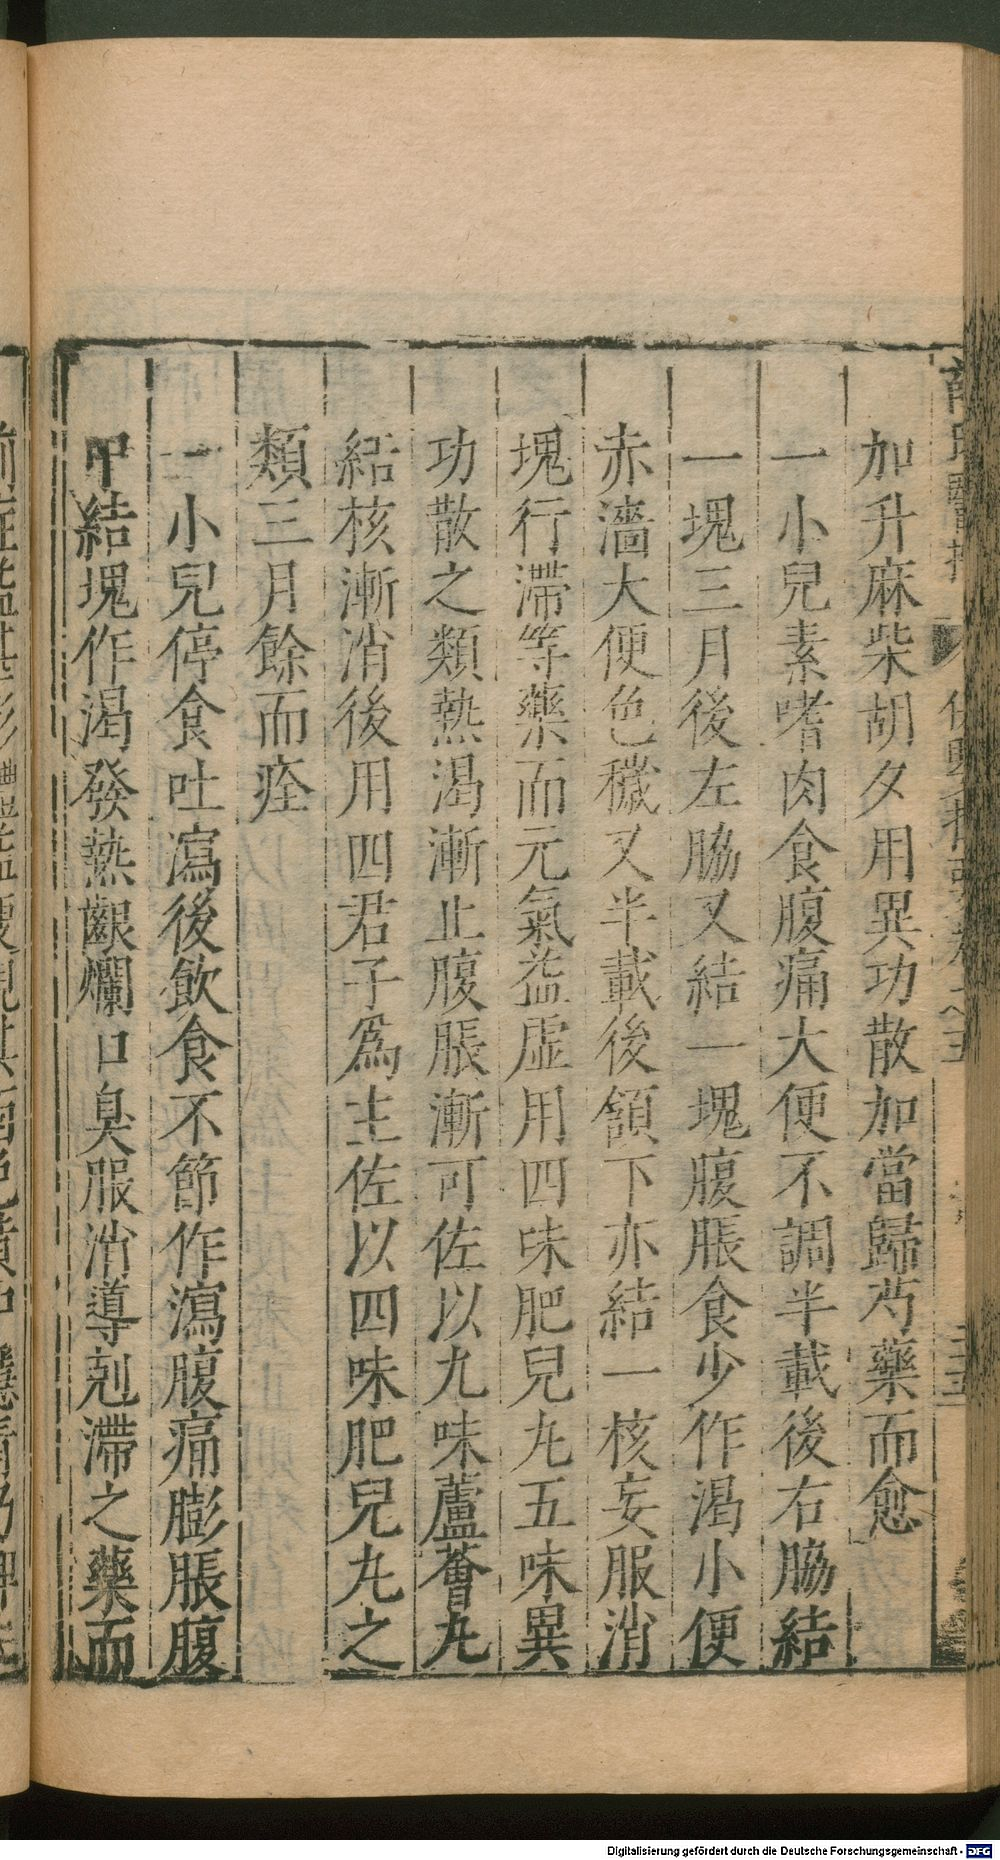 加升麻柴胡夕用異功散加當歸芍藥而愈
一小兒素嗜肉食腹痛大便不調半載後右脇結
一塊三月後左脇又結一塊腹脹食少作渴小便
赤濇大便色穢又半載後頷下亦結一核妄服消
塊行滯等藥而元氣益虛用四味肥兒丸五味異
功散之類熱渴漸止腹脹漸可佐以九味蘆薈丸
結核漸消後用四君子為主佐以四味肥兒丸之
類三月餘而痊
一小兒停食吐瀉後飲食不節作瀉腹痛膨脹腹
中結塊作渴發熱齦爛口臭服消導剋滯之藥而
Digitalisierung gefördert durch die Deutsche Forschungsgemeinschaft - DFG